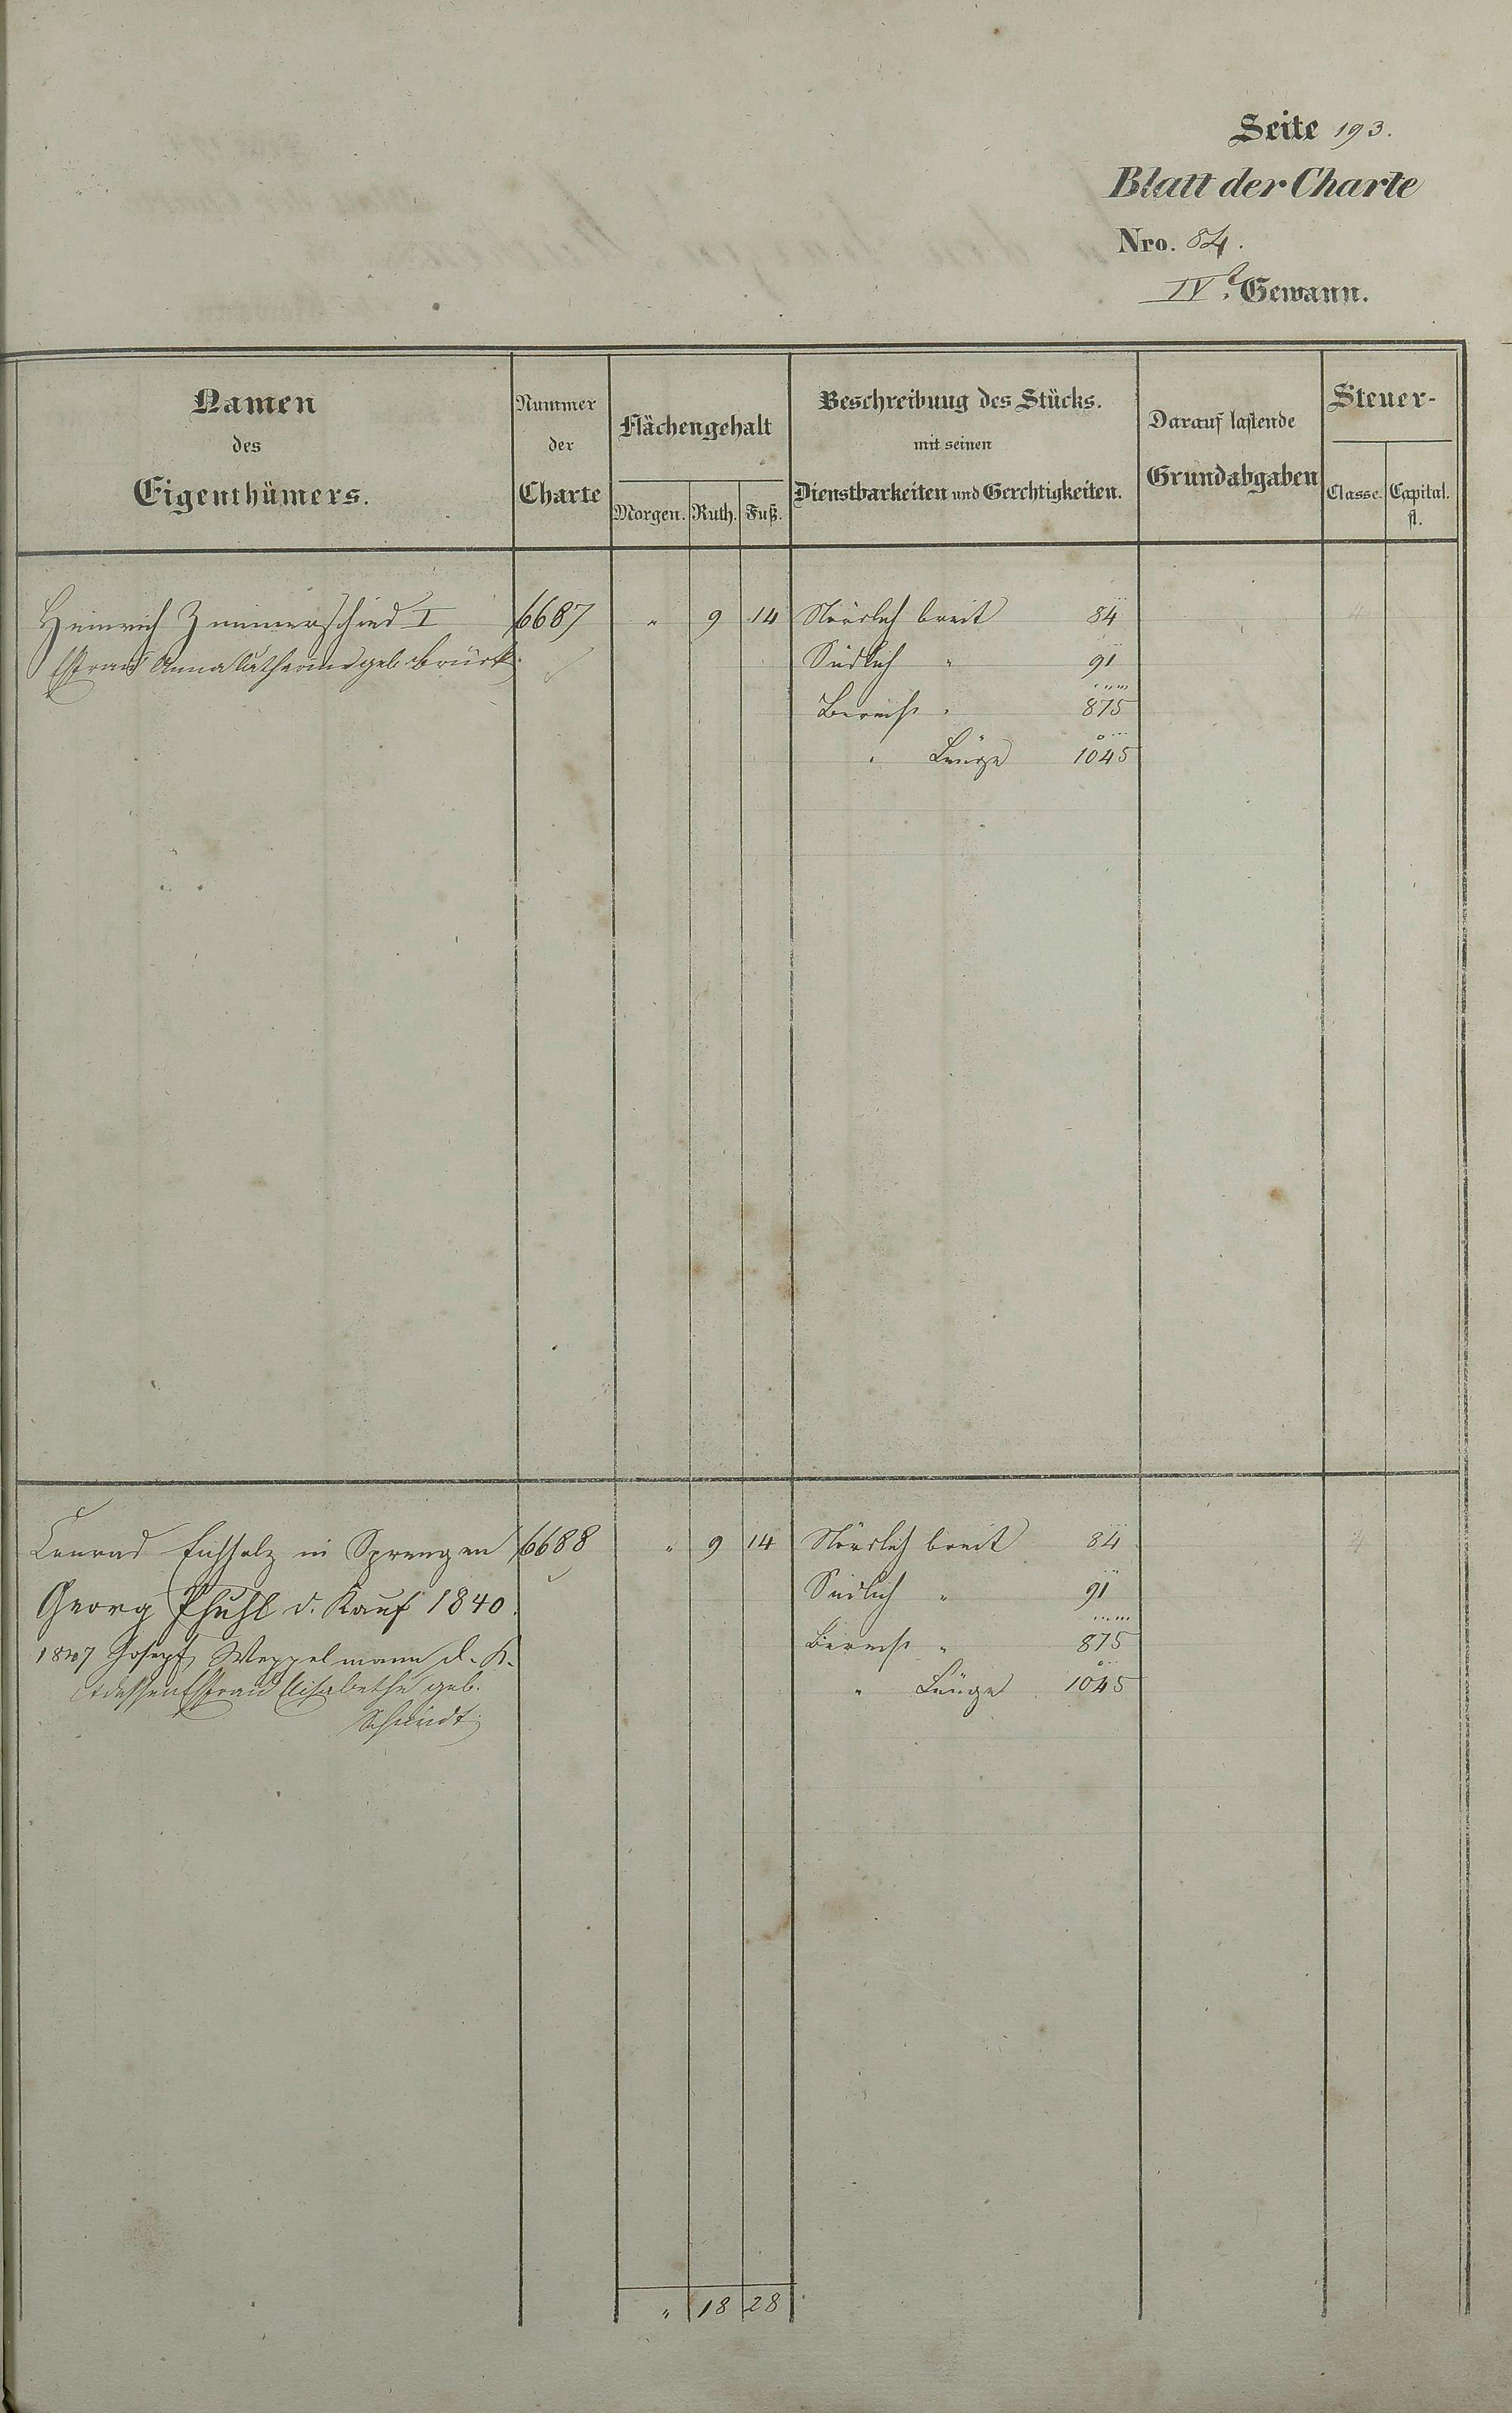 Seite 193.
Blatt der Charte
Nro. 84.
IVt. Gewann.
Namen
des
Eigenthümers.
Nummer
der
Charte
Flächengehalt
Morgen. Ruth. Fuß.
Beschreibung des Stücks.
mit seinen
Dienstbarkeiten und Gerchtigkeiten.
Darauf lastende
Grundabgaben
Steuer-
Classe. Capital.
fl.
Heinrich Zimmerschied I 6687 " 9 14 Nördlich breit 84 4
Ehfrau Anna Catharine geb. Brück. Südlich " 91
Berechn. " 875
" Länge 1045
Conrad Eichholz in 6688 " 9 14 Nördlich breit 84 4
Georg Pfuhl d. Kauf 1840. Südlich " 91
1847 Joseph Weppelmann d. K. Berechn. " 875
Ehfrau Elisabetha geb. " Länge 1045
Schmidt
" 18 28